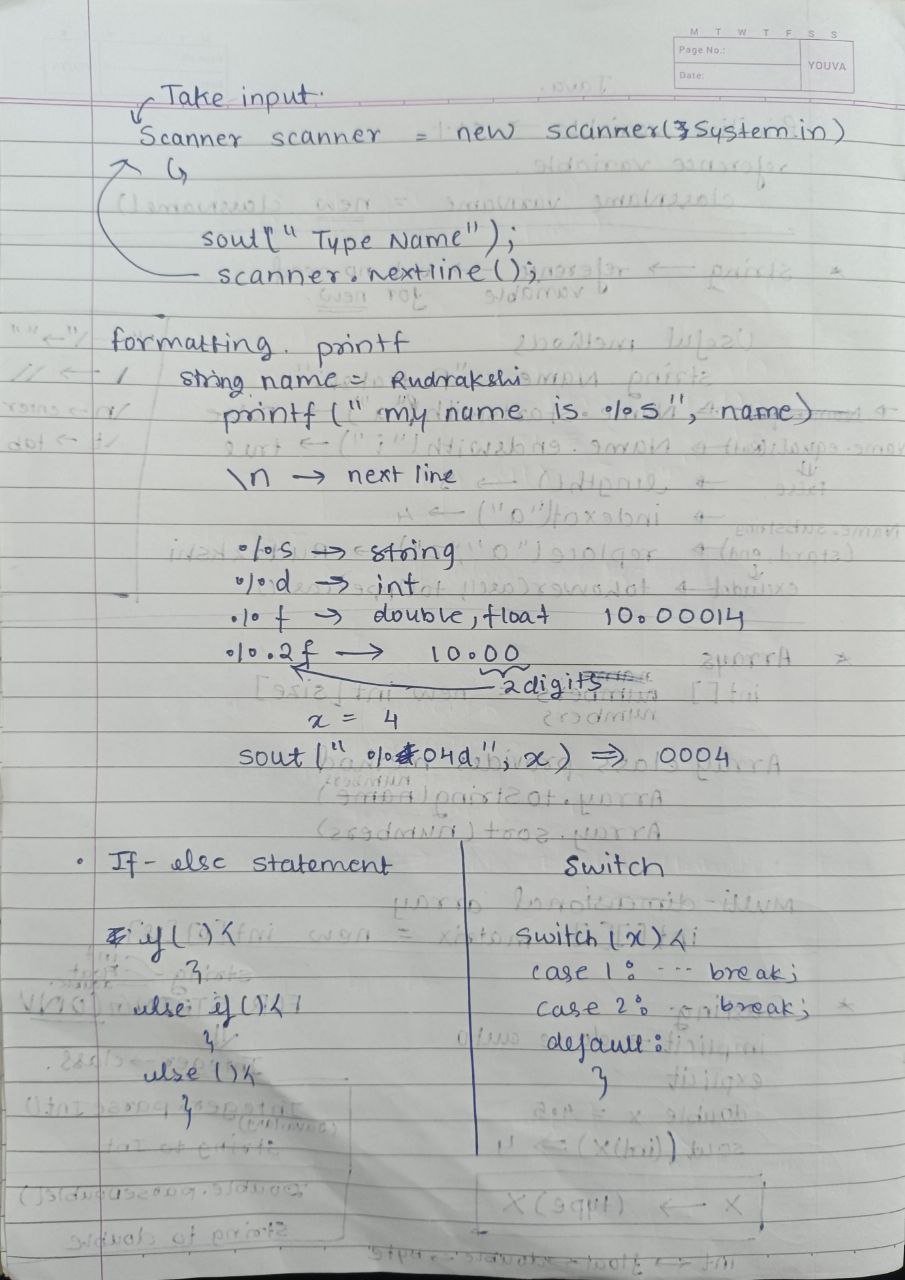 M T W T F S S
Page No.:
Date:
YOUVA
Take input.
Scanner scanner = new scanner(System.in)
sout(" Type Name");
scanner.nextline();
formatting. printf
string name = Rudrakshi
printf (" my name is %s", name)
\n → next line
%s → string
%d → int
%f → double, float 10.00014
%.2f → 10.00
2 digits
x = 4
sout (" %04d", x) ⇒ 0004
• If-else statement
if ( ) {
}
else if () {
}
else () {
}
Switch
Switch (x) {
case 1: ... break;
case 2: break;
default:
}